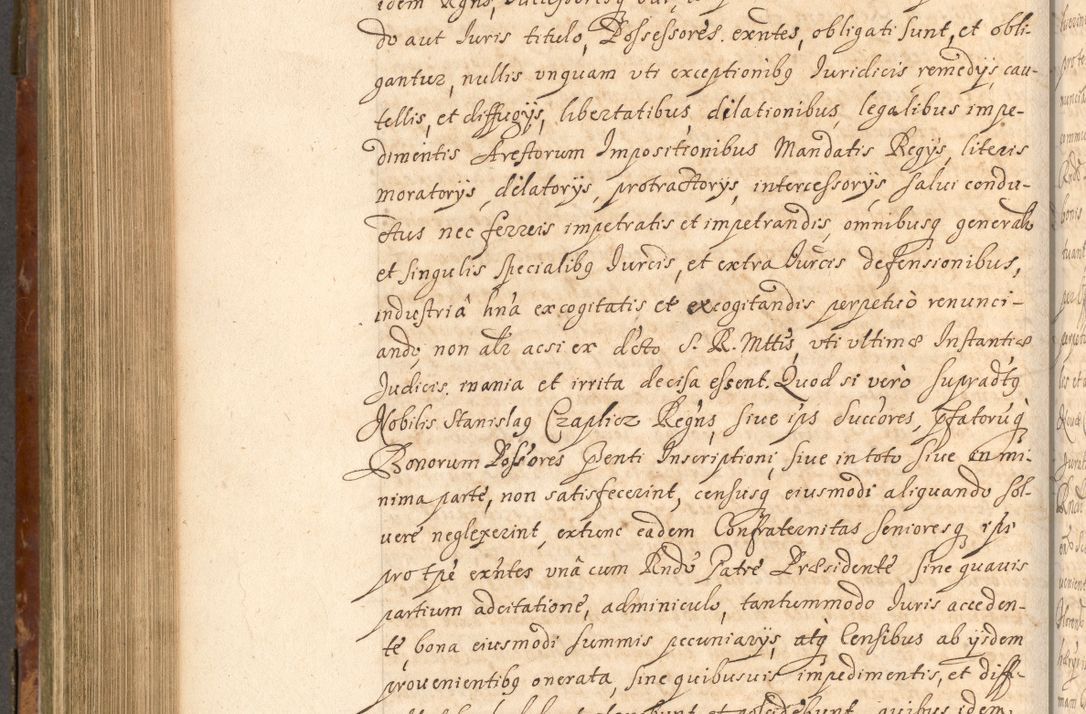 do aut Juris titulo, Possessores exñtes, obligati sunt, et obli-
gantur, nullis unquam uti exceptionibq Juridicis remedijs, cau-
tellis, et diffugijs, libertatibus, dilationibus, legalibus impe-
dimentis Arestorum Impositionibus Mandatis Regijs, literis
moratorijs, dilatorijs, protractorijs, intercessorijs, salui condu-
ctus nec ferreis impetratis et impetrandis, omnibusq generalib
et singulis specialibq Jurcis, et extra Jurcis defensionibus,
industriâ hña excogitatis et excogitandis perpetuò renunci-
ando, non alr acsi ex dcto S. R. Mttis, uti ultimæ Instantiæ
Judicis, inania et irrita decisa essent. Quod si verò supradtq
Nobilis Stanislaq Czaplicz Regñs, siue ips Succores, pfatorúq
Bonorum Possores Psenti Inscriptioni, siue in toto siue in mi-
nima parte, non satisfecerint, censusq eiusmodi aliquando sol-
uere neglexerint, extunc eadem Confraternitas senioresq ips
pro tpe exñtes vnâ cum Rndo Patre Præsidente sine quauis
partium adcitatione, adminiculo, tantummodo Juris acceden-
te, bona eiusmodi summis pecuniarijs, atq Censibus ab ijsdem
prouenientibq onerata, sine quibusuis impedimentis, et diff-
quibus idem